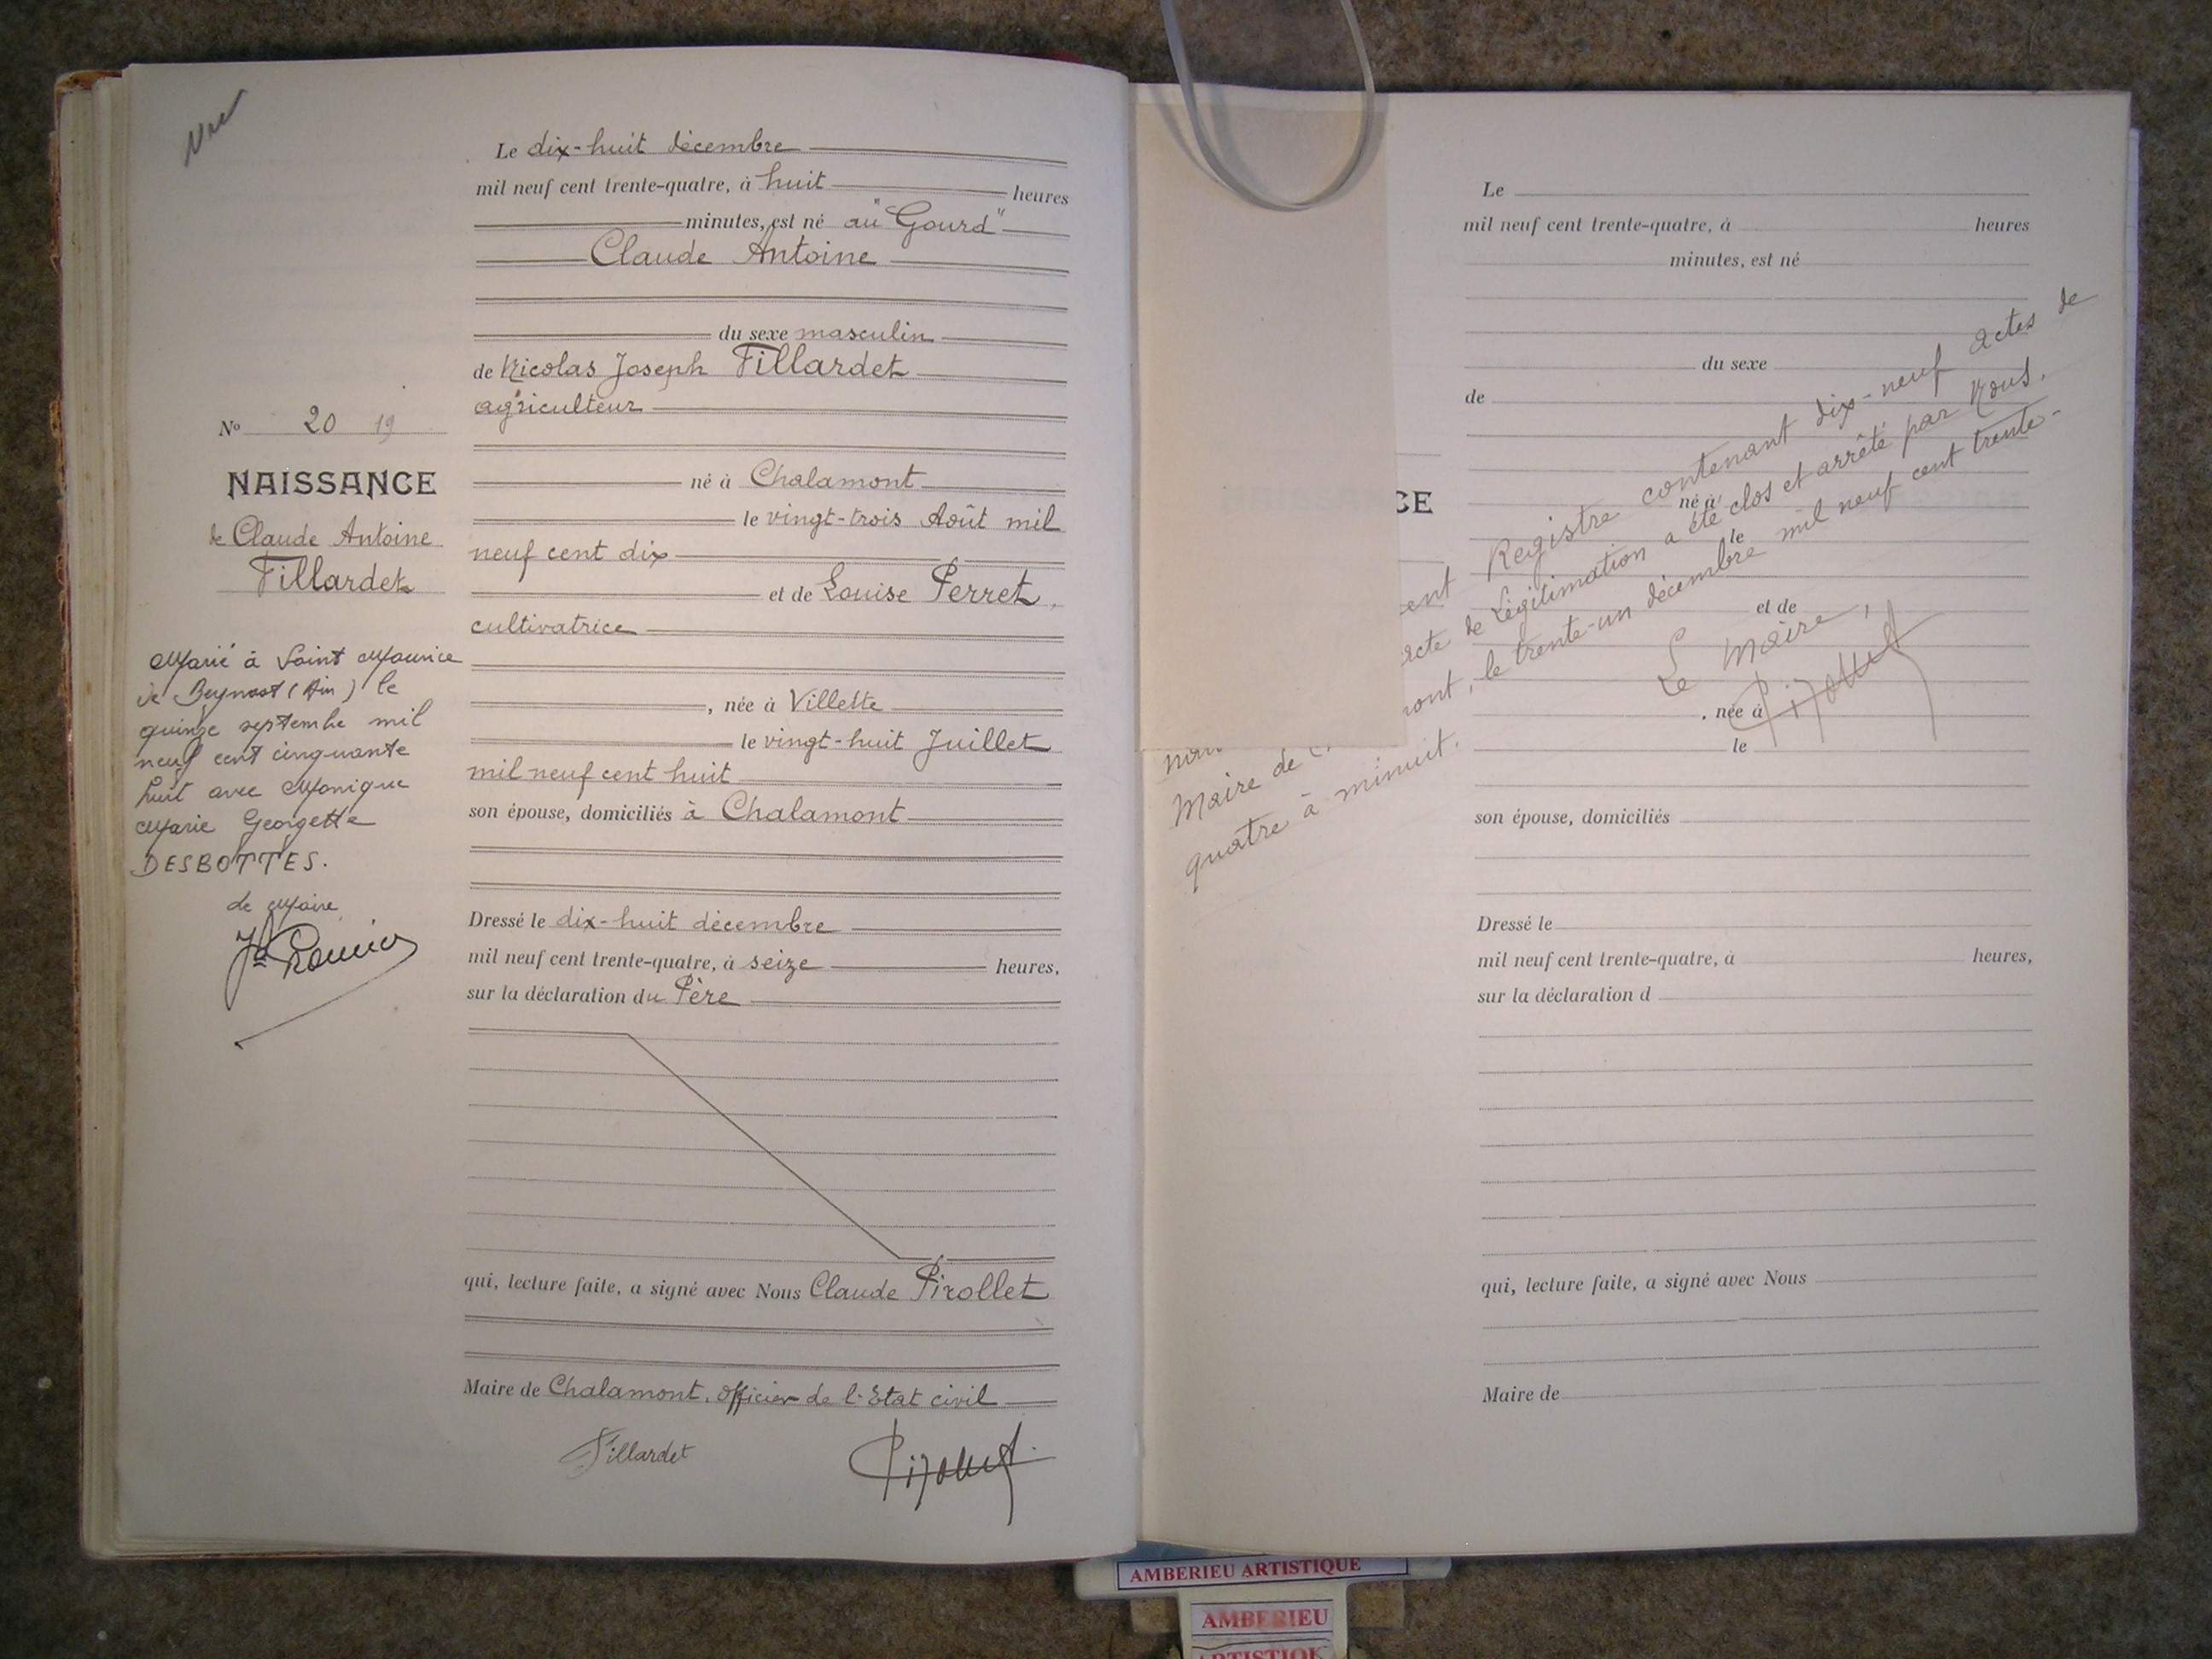 Vu
Le dix-huit décembre
mil neuf cent trente-quatre, à huit heures
minutes, est né au "Gourd"
Claude Antoine
du sexe masculin
de Nicolas Joseph Fillardet
agriculteur
né à Chalamont
le vingt-trois Août mil
neuf cent dix
et de Louise Perret,
cultivatrice
, née à Villette
le vingt-huit Juillet
mil neuf cent huit
son épouse, domiciliés à Chalamont
Dressé le dix-huit décembre
mil neuf cent trente-quatre, à seize heures,
sur la déclaration du Père
qui, lecture faite, a signé avec Nous Claude Pirollet
Maire de Chalamont, officier de l'Etat civil
Fillardet
Pirollet
No 20 19
NAISSANCE
de Claude Antoine
Fillardet
Marié à Saint Maurice
de Beynost (Ain) le
quinze septembre mil
neuf cent cinquante
huit avec Monique
Marie Georgette
DESBOTTES.
Le Maire
Le
mil neuf cent trente-quatre, à heures
minutes, est né
du sexe
de
né à
le
et de
, née à
le
son épouse, domiciliés
Dressé le
mil neuf cent trente-quatre, à heures,
sur la déclaration d
qui, lecture faite, a signé avec Nous
Maire de
CE
ent Registre contenant dix-neuf actes de
acte de Légitimation a été clos et arrêté par Nous.
Maire de C
mont, le trente-un décembre mil neuf cent trente-
quatre à minuit.
Le Maire,
Pirollet
AMBERIEU ARTISTIQUE
AMBERIEU
ARTISTIQU